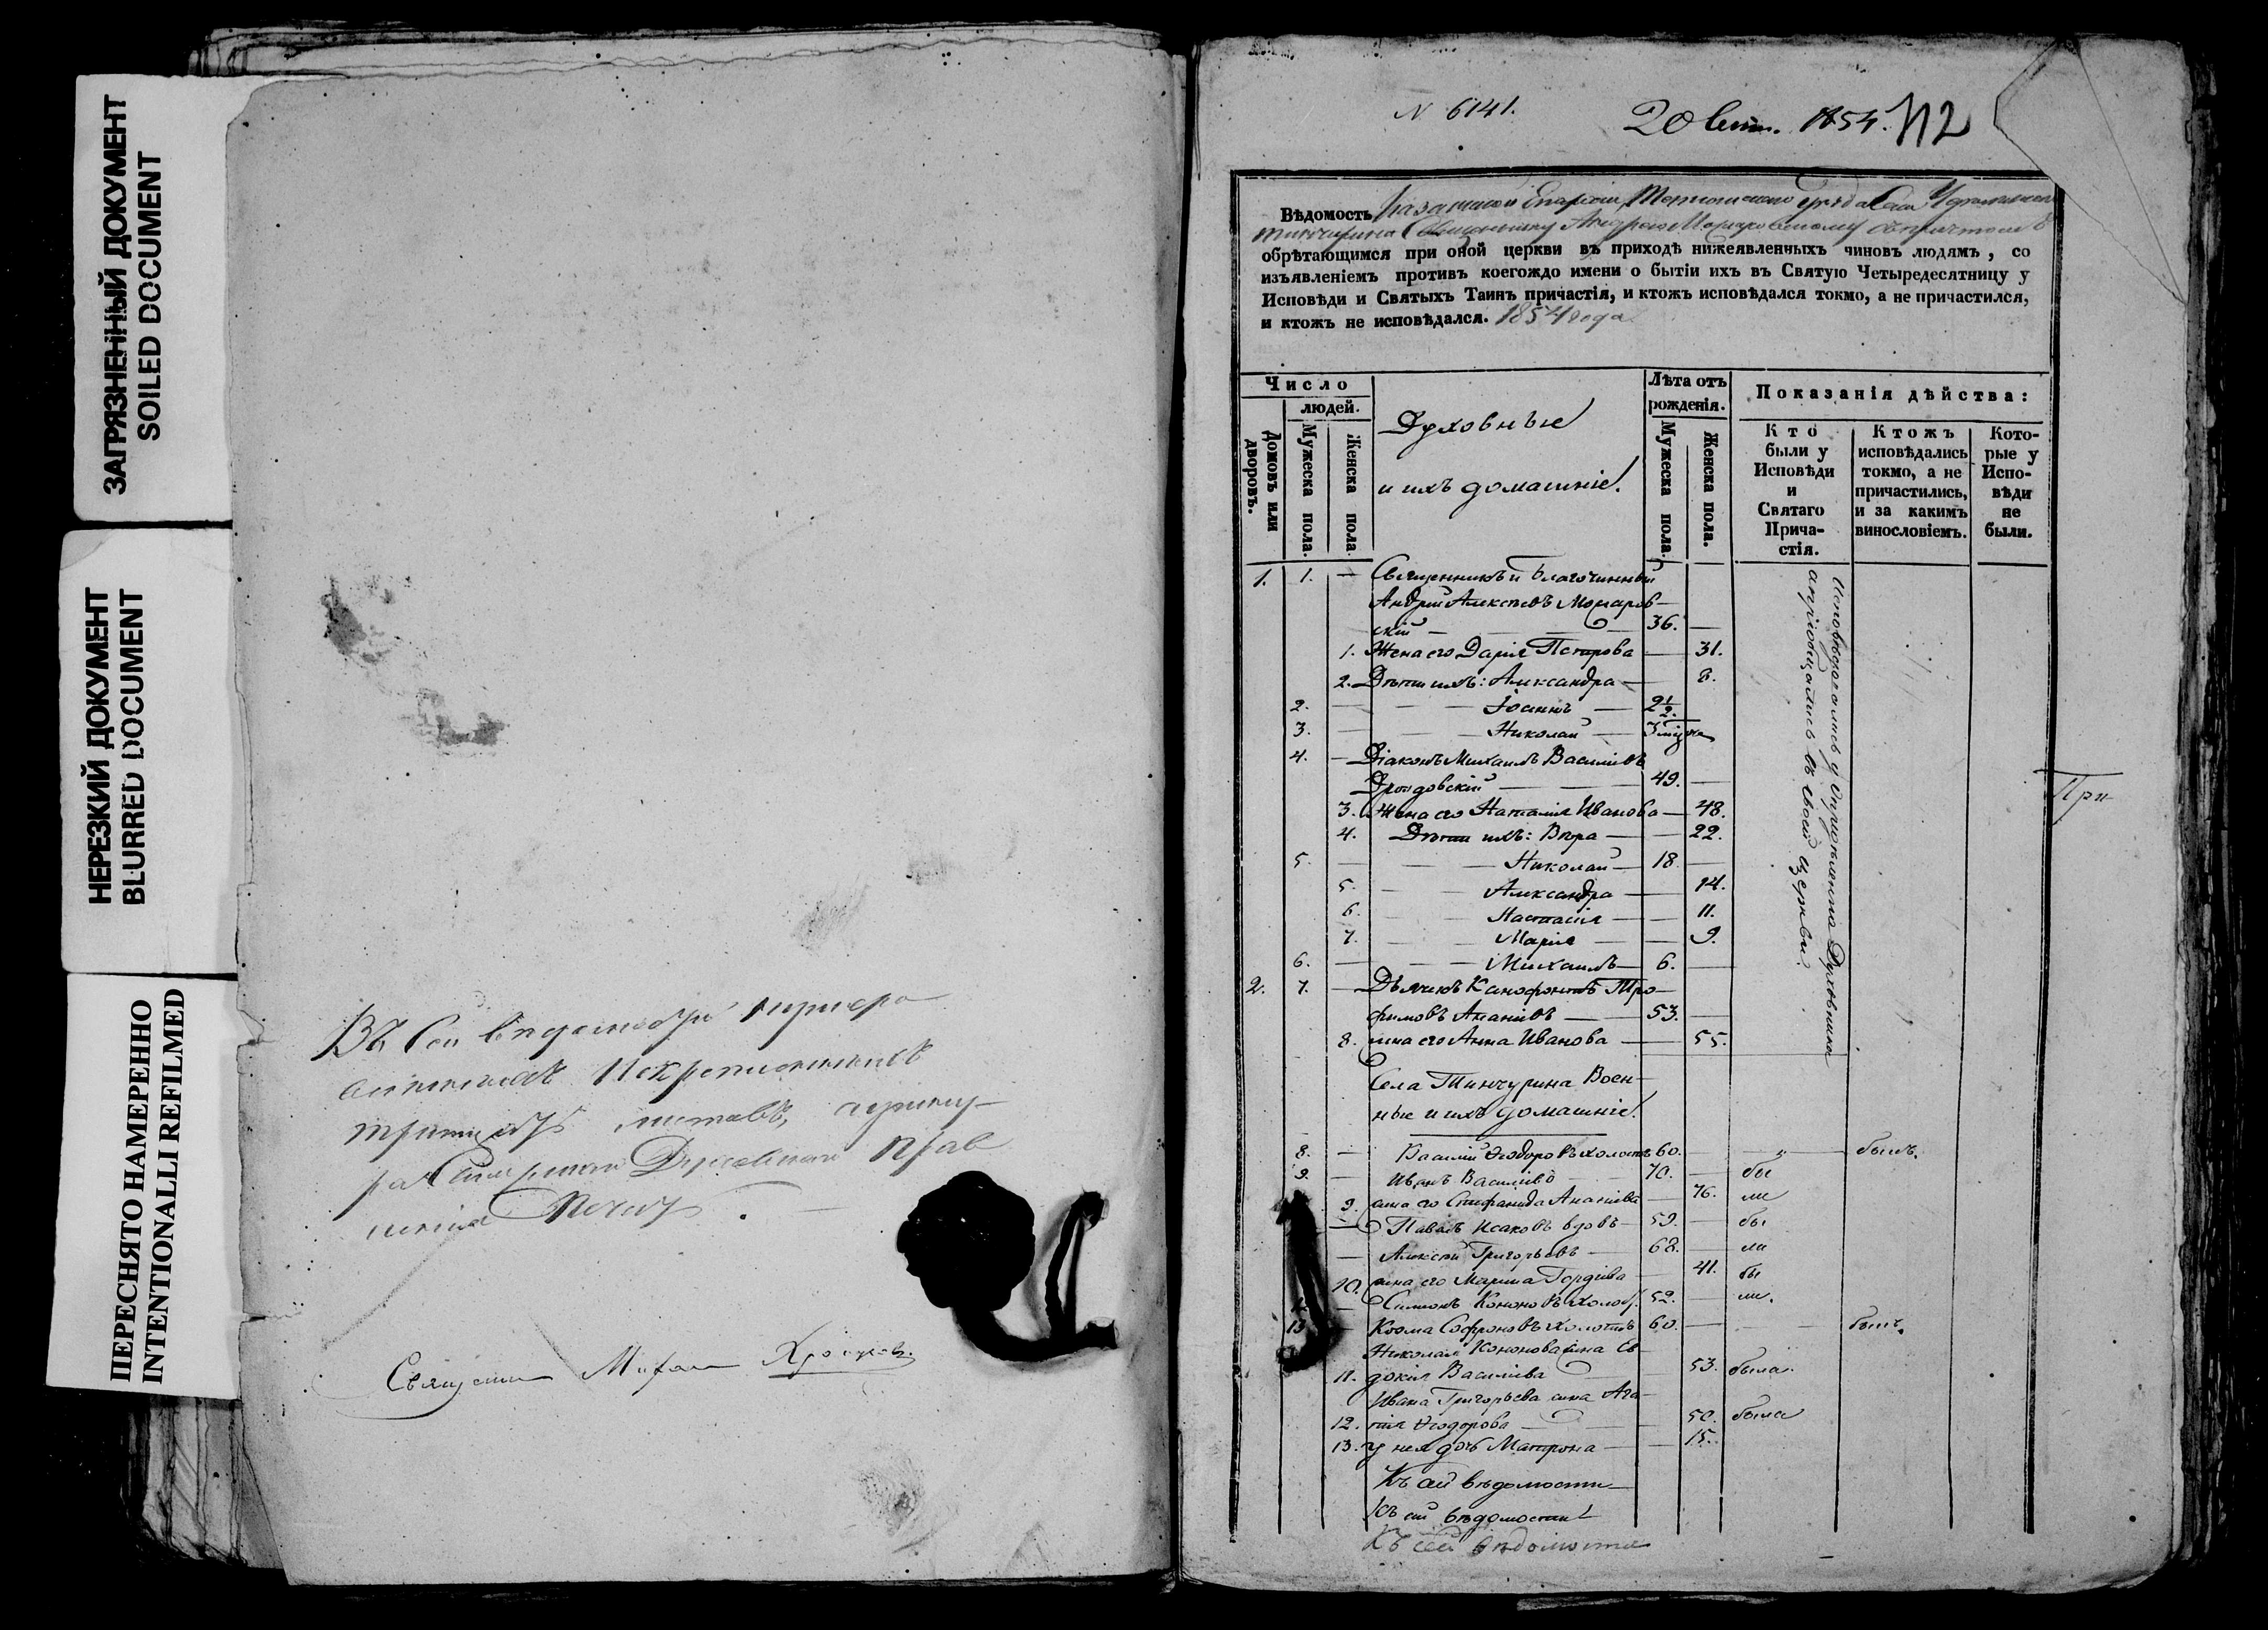 ЗАГРЯЗНЕННЫЙ ДОКУМЕНТ
SOILED DOCUMENT
НЕРЕЗКИЙ ДОКУМЕНТ
BLURRED DOCUMENT
ПЕРЕСНЯТО НАМЕРЕННО
INTENTIONALLI REFILMED
Въ сей
листовъ,
Духовнаго Прав
ленія
N 6141.
20 Сент. 1854. 112
Вѣдомость Казанской Епархіи, Тетюшскаго уѣзда Села
Священнику Андрею съ причтомъ
обрѣтающимся при оной церкви въ приходѣ нижеявленныхъ чиновъ людямъ, со
изъявленіемъ противъ коегождо имени о бытіи ихъ въ Святую Четыредесятницу у
Исповѣди и Святыхъ Таинъ причастія, и ктожъ исповѣдался токмо, а не причастился,
и ктожъ не исповѣдался. 1854 года
Число
людей.
Домовъ или дворовъ.
Мужеска пола.
Женска пола
Духовные
и ихъ домашніе.
Лѣта отъ
рожденія.
Мужеска пола.
Женска пола.
Показанія дѣйства:
Кто
были у
Исповѣди
и
Святаго
Прича-
стія.
Ктожъ
исповѣдались
токмо, а не
причастились,
и за какимъ
винословіемъ.
Кото-
рые у
Испо-
вѣди
не
были.
1. 1. — Священникъ и Благочинный
Андрей Алексѣевъ Момаров-
скій — 36. —
1. Жена его Дарія Петрова — 31.
2. Дѣти ихъ: Александра — 8.
2. — Іоаннъ — 2 1/2.
3. — Николай — 3
4. — Діаконъ Михаилъ Василіевъ
49. —
3. Жена его Наталія Иванова — 48.
4. Дѣти ихъ: Вѣра — 22.
5. — Николай — 18. —
5. — Александра — 14.
6. — Настасія — 11.
7. — Марія — 9.
6. — Михаилъ — 6. —
2. 7. — Дьячекъ Ксенофонтъ Тро-
фимовъ Ананьевъ — 53. —
8. жена его Анна Иванова — 55.
Исповѣдовались у опредѣленнаго Духовника
а пріобщались въ своей церкви.
При
Села Тинчурина Воен-
ные и ихъ домашніе.
8. — Василій Ѳеодоровъ холостъ 60. — „ — былъ.
9. — Иванъ Василіевъ 70. — бы
9. жена его Стефанида Ананіева — 76. ли
— Павелъ Исаковъ вдовъ — 59. — бы
— Алексѣй Григорьевъ — 68. — ли
10. жена его Марина Гордѣева — 41. бы
— Симеонъ Кононовъ 52. — ли.
13 — Козма Софроновъ холостъ 60. — былъ.
Николая Кононова жена Ев-
11. докія Василіева 53. была.
Ивана Григорьева жена Ага-
12. пія Ѳеодорова — 50. была
13. у нея дочь Матрона — 15.
Къ сей вѣдомости
Къ сей вѣдомости
Къ сей вѣдомости